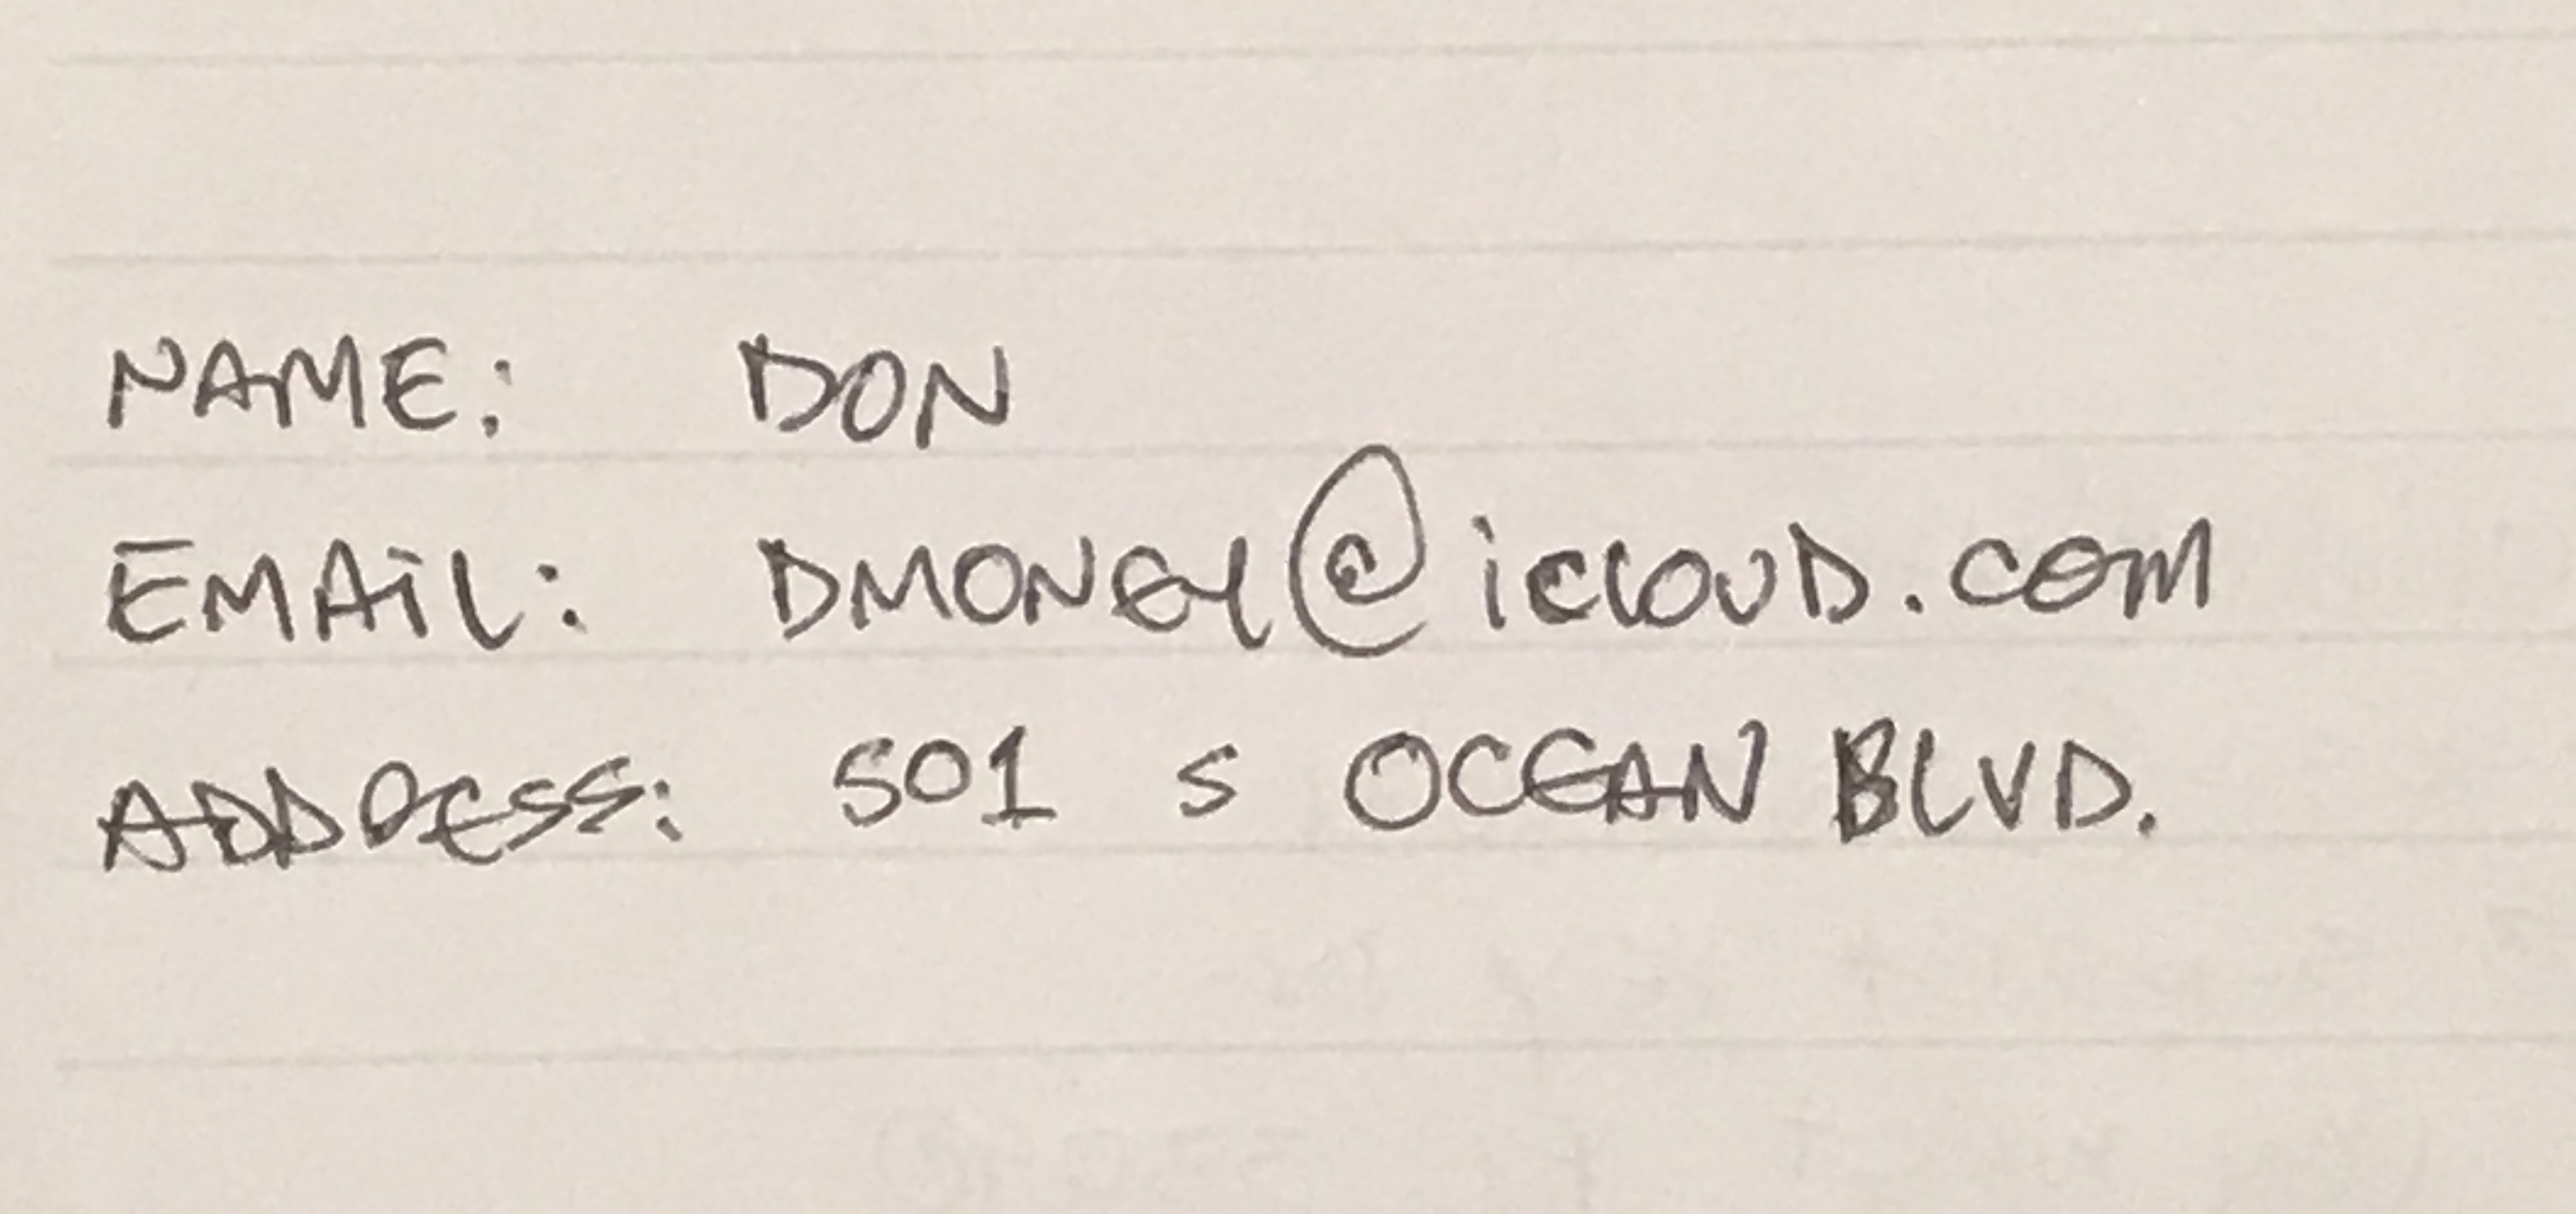 NAME: DON
EMAIL: DMONEY@iCLOUD.COM
ADDRESS: 501 S OCEAN BLVD.